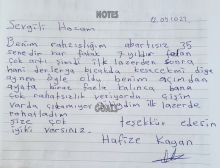 NOTES
12.09.2023
Sevgili Hasam
Benim rahatsızlığım abartısız 35
senedir var fakat 7 yıldır falan
çok arttı şimdi ilk lazerden sonra
hani derlerya bıçakla kesecekmi diye
aynen öyle oldu benim acımdan
ayata biraz fazla kalınca bana
çok rahatsızlık veriyordu çişin
varda çıkamıyor dedim ilk lazerde
rahatladım
size çok teşekkür ederim
iyiki varsınız.
Hafize Kayan